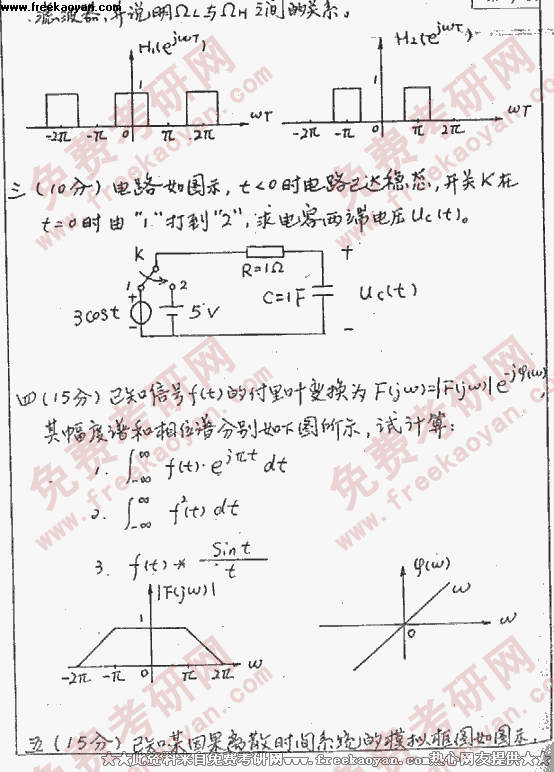 www.freekaoyan.com
滤波器,并说明ΩL与ΩH之间的关系。
H₁(e^{jωT}) H₂(e^{jωT})
1 1
-2π -π 0 π 2π ωT -2π -π 0 π 2π ωT
三(10分)电路如图示,t<0时电路已达稳态,开关K在
t=0时由"1"打到"2",求电容两端电压Uc(t)。
K
R=1Ω
+
1 2
+
3cost 5V C=1F Uc(t)
- -
四(15分)已知信号f(t)的付里叶变换为F(jω)=|F(jω)|e^{-jφ(ω)},
其幅度谱和相位谱分别如下图所示,试计算:
1. ∫_{-∞}^{∞} f(t)·e^{jπt} dt
2. ∫_{-∞}^{∞} f²(t) dt
3. f(t) * Sint/t
|F(jω)| φ(ω)
1 ω
-2π -π 0 π 2π ω 0 ω
五(15分)已知某因果离散时间系统的模拟框图如图示,
★大此资料来自免费考研网www.freekaoyan.com热心网友提供★
免费考研网
www.freekaoyan.com